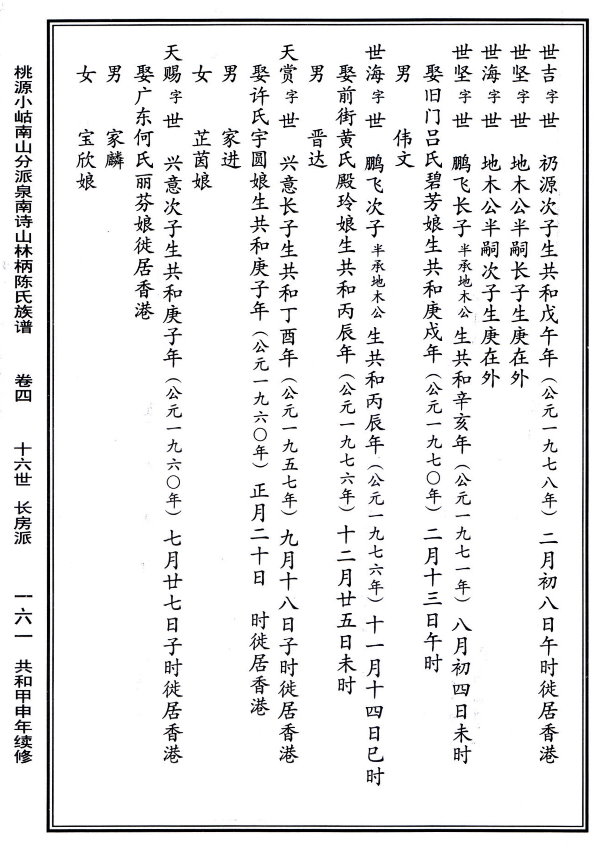 世吉 字 世 礽源次子生共和戊午年（公元一九七八年）二月初八日午时徙居香港
世坚 字 世 地木公半嗣长子生庚在外
世海 字 世 地木公半嗣次子生庚在外
世坚 字 世 鹏飞长子 半承地木公 生共和辛亥年（公元一九七一年）八月初四日未时
娶旧门吕氏碧芳娘生共和庚戍年（公元一九七〇年）二月十三日午时
男 伟文
世海 字 世 鹏飞次子 半承地木公 生共和丙辰年（公元一九七六年）十一月十四日巳时
娶前街黄氏殿玲娘生共和丙辰年（公元一九七六年）十二月廿五日未时
男 晋达
天赏 字 世 兴意长子生共和丁酉年（公元一九五七年）九月十八日子时徙居香港
娶许氏宇圆娘生共和庚子年（公元一九六〇年）正月二十日 时徙居香港
男 家进
女 芷茵娘
天赐 字 世 兴意次子生共和庚子年（公元一九六〇年）七月廿七日子时徙居香港
娶广东何氏丽芬娘徙居香港
男 家麟
女 宝欣娘
桃源小岵南山分派泉南诗山林柄陈氏族谱 卷四 十六世 长房派 一六一 共和甲申年续修